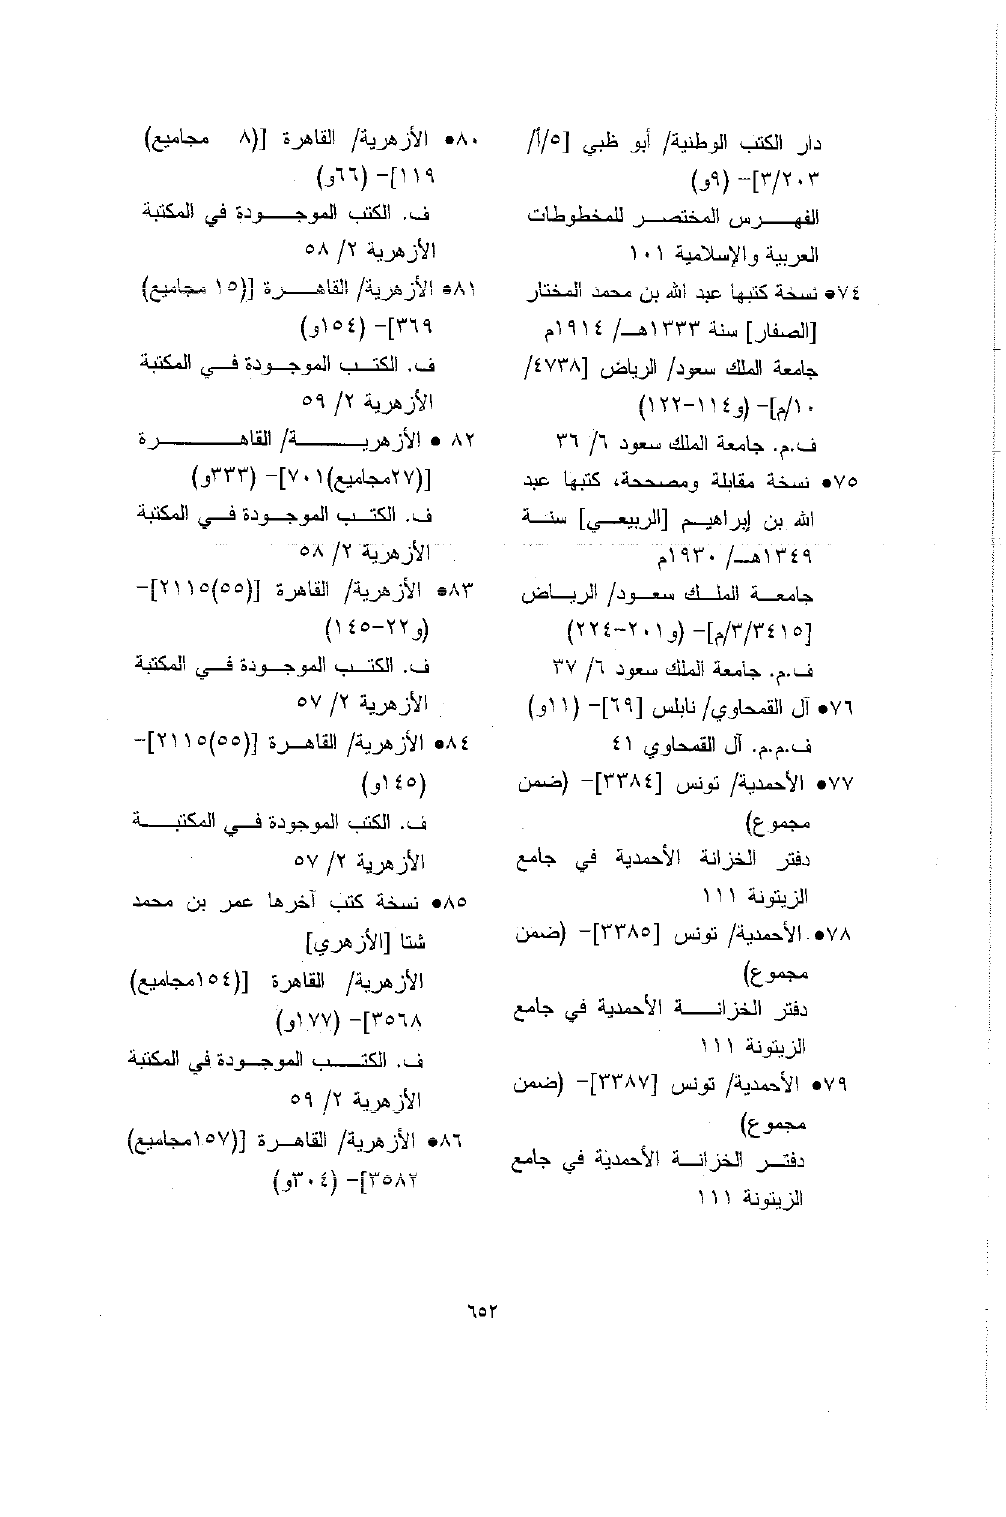 دار الكتب الوطنية/ أبو ظبي [٥/أ/
٣/٢٠٣]- (٩و)
الفهرس المختصر للمخطوطات
العربية والإسلامية ١٠١
٧٤• نسخة كتبها عبد الله بن محمد المختار
[الصفار] سنة ١٣٣٣هـ/ ١٩١٤م
جامعة الملك سعود/ الرياض [٤٧٣٨/
١٠/م]- (و١١٤-١٢٢)
ف.م. جامعة الملك سعود ٦/ ٣٦
٧٥• نسخة مقابلة ومصححة، كتبها عبد
الله بن إبراهيم [الربيعي] سنة
١٣٤٩هـ/ ١٩٣٠م
جامعة الملك سعود/ الرياض
[٣/٣٤١٥/م]- (و٢٠١-٢٢٤)
ف.م. جامعة الملك سعود ٦/ ٣٧
٧٦• آل القمحاوي/ نابلس [٦٩]- (١١و)
ف.م.م. آل القمحاوي ٤١
٧٧• الأحمدية/ تونس [٣٣٨٤]- (ضمن
مجموع)
دفتر الخزانة الأحمدية في جامع
الزيتونة ١١١
٧٨• الأحمدية/ تونس [٣٣٨٥]- (ضمن
مجموع)
دفتر الخزانة الأحمدية في جامع
الزيتونة ١١١
٧٩• الأحمدية/ تونس [٣٣٨٧]- (ضمن
مجموع)
دفتر الخزانة الأحمدية في جامع
الزيتونة ١١١
٨٠• الأزهرية/ القاهرة [(٨ مجاميع)
١١٩]- (٦٦و)
ف. الكتب الموجودة في المكتبة
الأزهرية ٢/ ٥٨
٨١• الأزهرية/ القاهرة [(١٥ مجاميع)
٣٦٩]- (١٥٤و)
ف. الكتب الموجودة في المكتبة
الأزهرية ٢/ ٥٩
٨٢ • الأزهرية/ القاهرة
[(٢٧مجاميع)٧٠١]- (٣٣٣و)
ف. الكتب الموجودة في المكتبة
الأزهرية ٢/ ٥٨
٨٣• الأزهرية/ القاهرة [(٥٥)٢١١٥]-
(و٢٢-١٤٥)
ف. الكتب الموجودة في المكتبة
الأزهرية ٢/ ٥٧
٨٤• الأزهرية/ القاهرة [(٥٥)٢١١٥]-
(١٤٥و)
ف. الكتب الموجودة في المكتبة
الأزهرية ٢/ ٥٧
٨٥• نسخة كتب آخرها عمر بن محمد
شتا [الأزهري]
الأزهرية/ القاهرة [(١٥٤مجاميع)
٣٥٦٨]- (١٧٧و)
ف. الكتب الموجودة في المكتبة
الأزهرية ٢/ ٥٩
٨٦• الأزهرية/ القاهرة [(١٥٧مجاميع)
٣٥٨٢]- (٣٠٤و)
٦٥٢